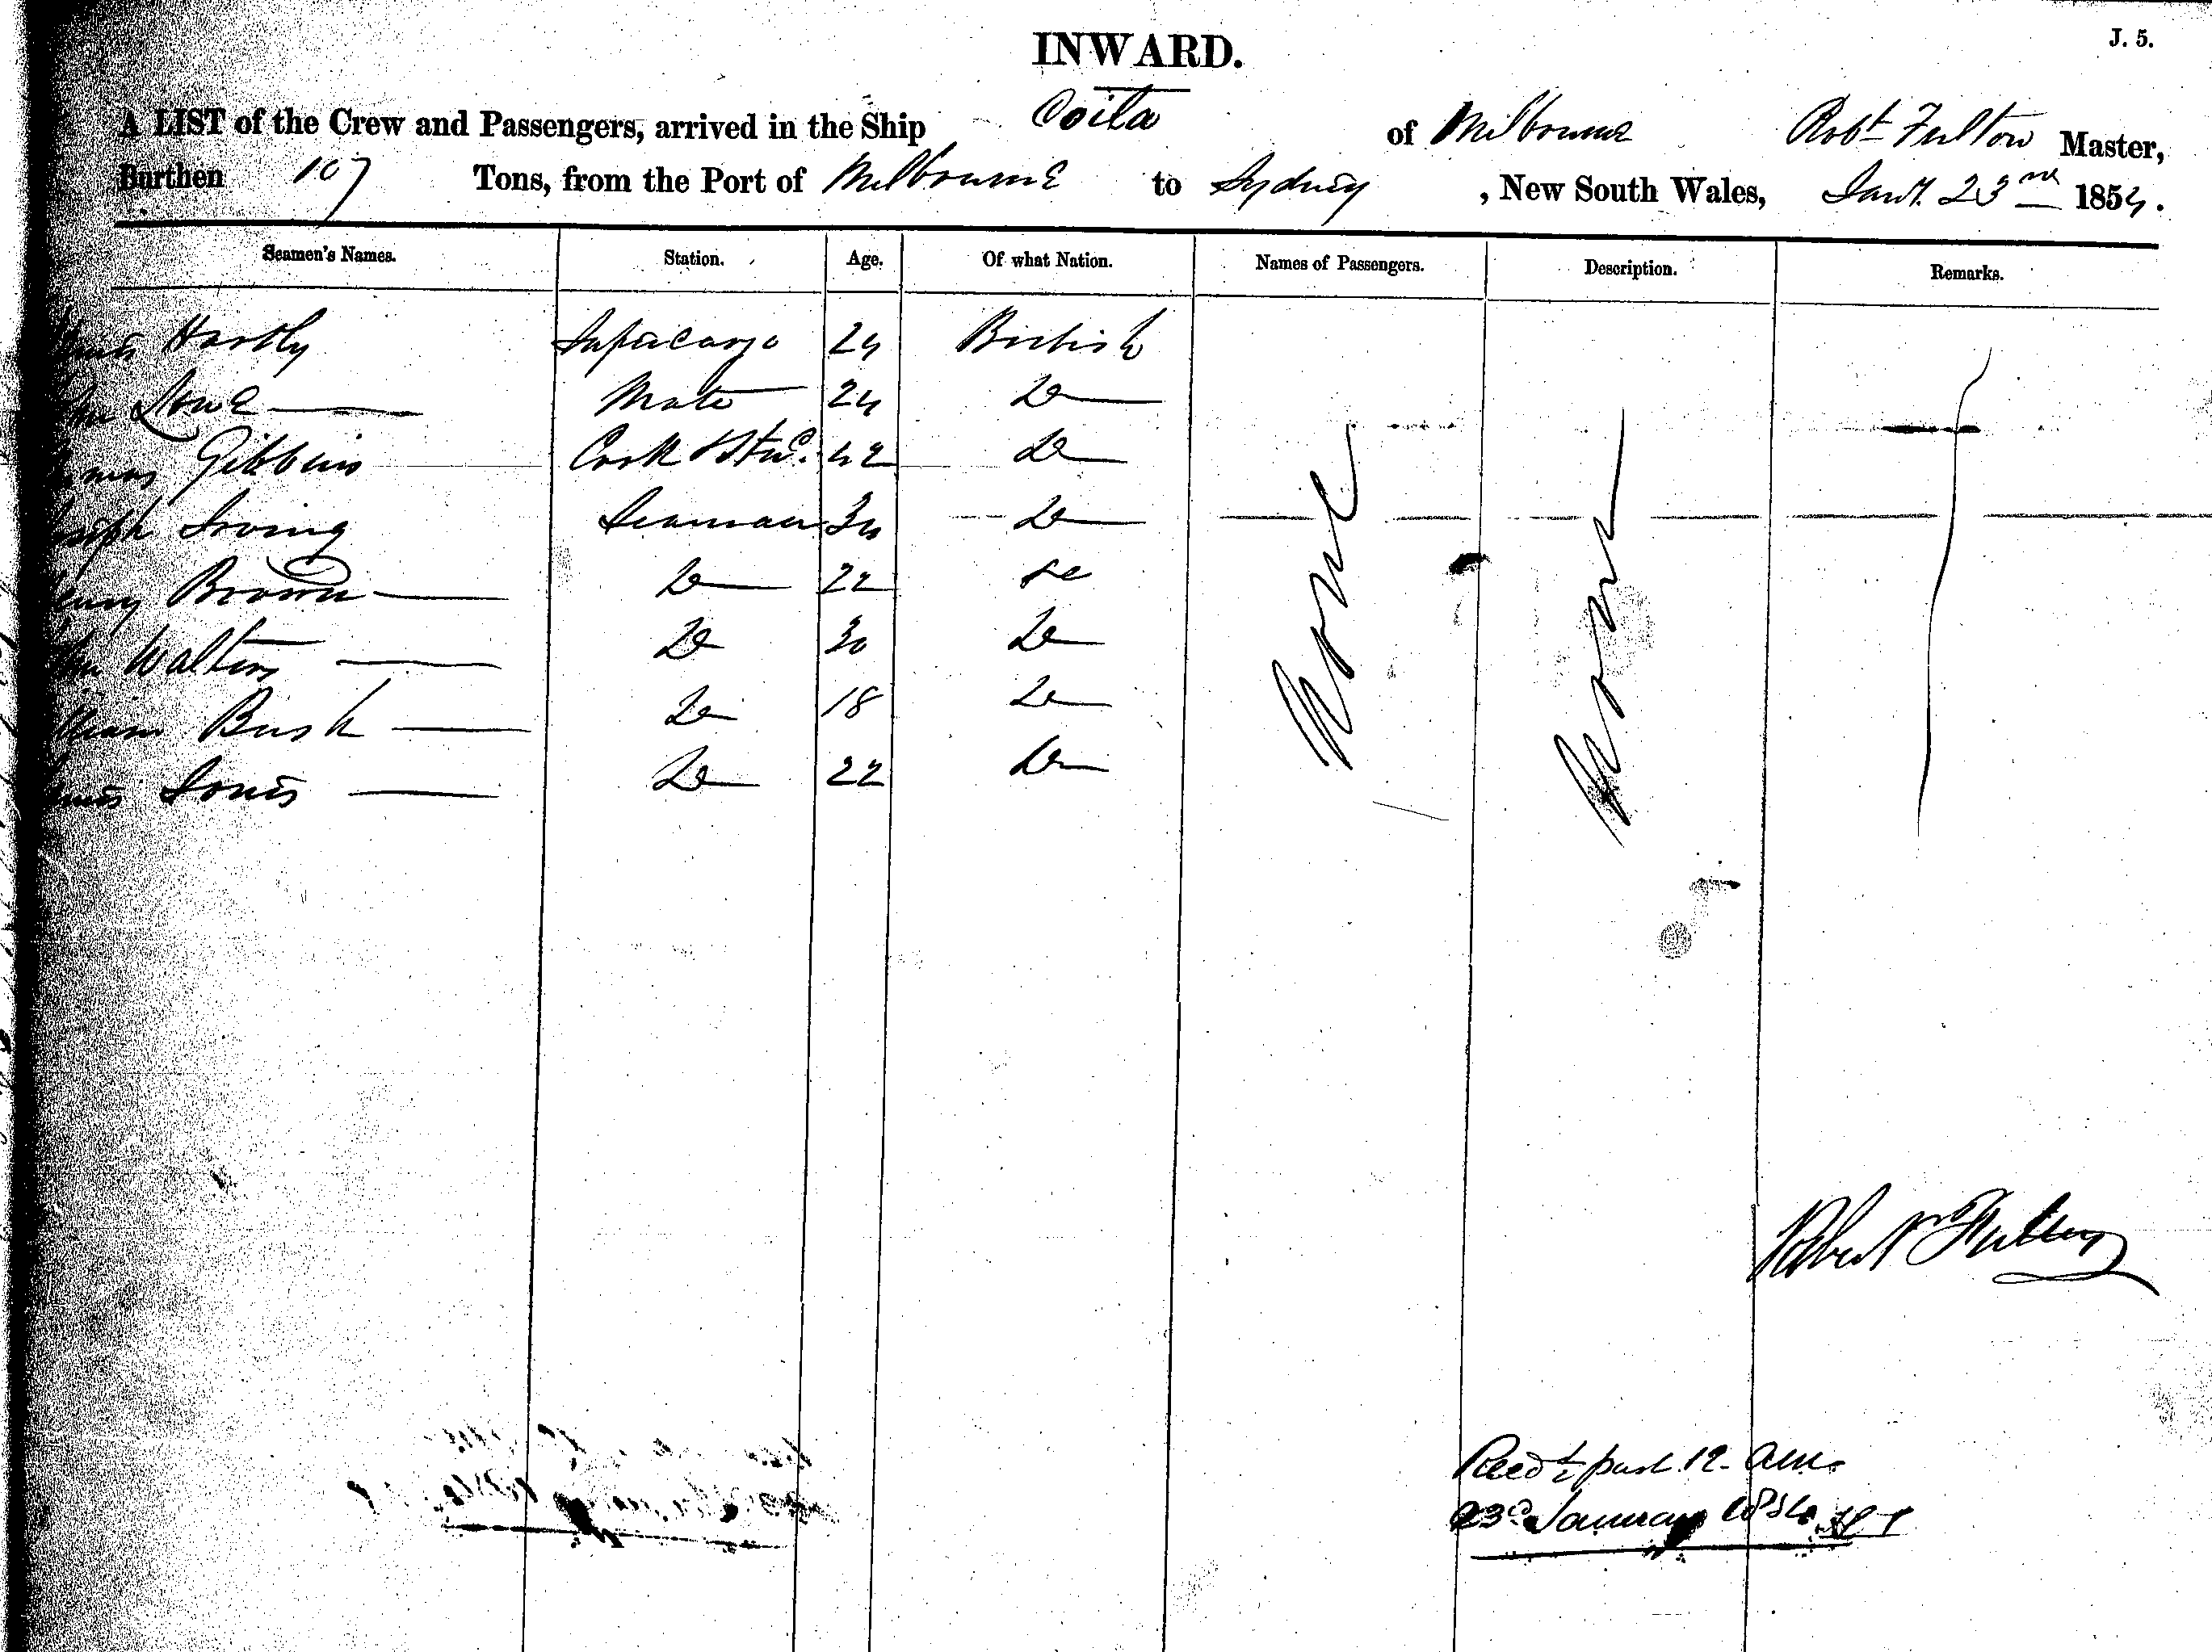 J. 5.
INWARD.
A LIST of the Crew and Passengers, arrived in the Ship Coila of Melbourne Robt Fulton Master,
Burthen 107 Tons, from the Port of Melbourne to Sydney, New South Wales, Jany. 23rd 1854.
Seamen's Names. Station. Age. Of what Nation. Names of Passengers. Description. Remarks.
Hartly Supacargo 24 British
Lowe Mate 24 Do
Gibbins Cook & Stwd. 42 Do
Joseph Irving Seaman 34 Do
Henry Brown Do 22 Do
Walters Do 30 Do
William Bush Do 18 Do
Jones Do 22 Do
None
None
Robert Fulton
Recd ½ past 12 am.
23d January 1854